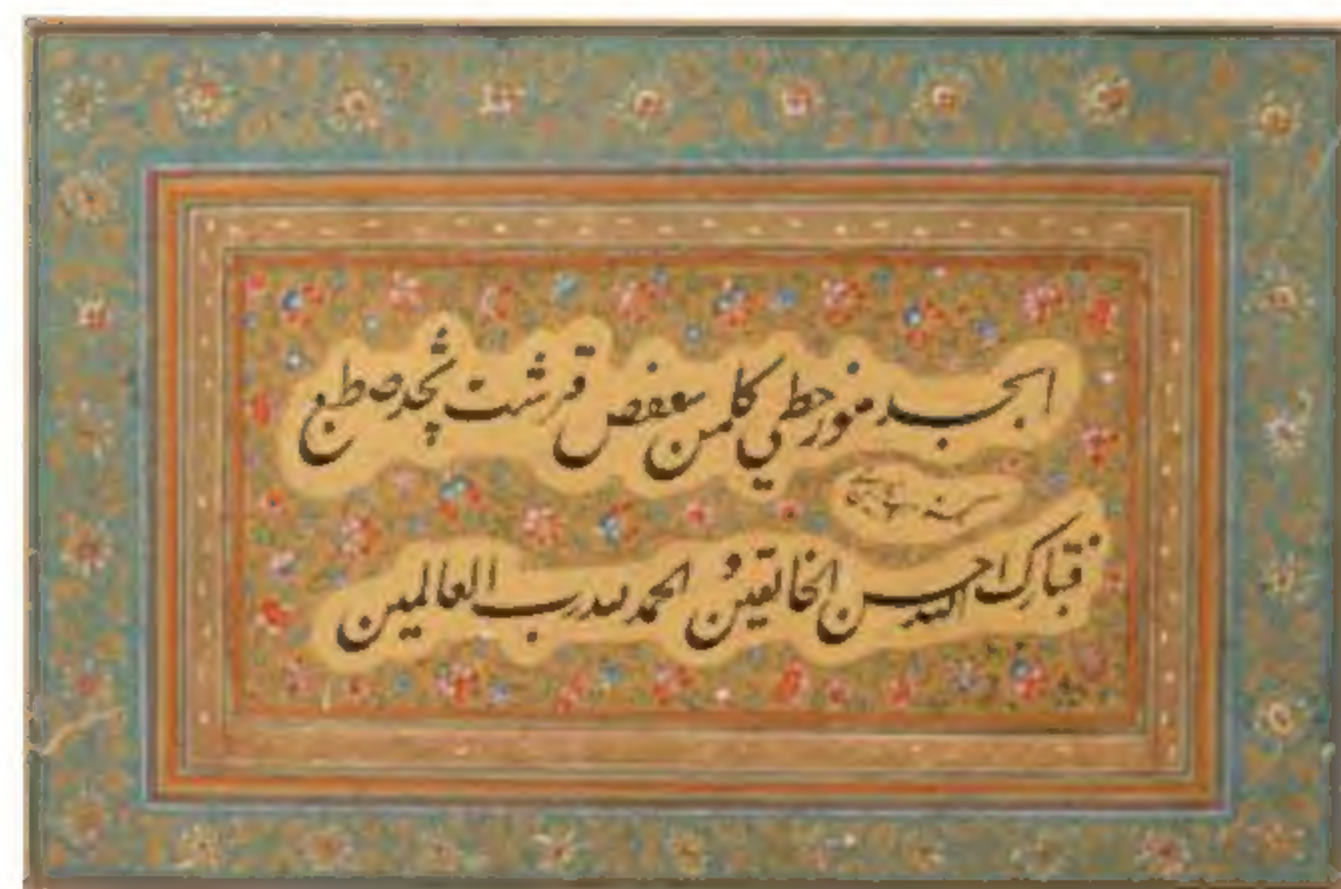 ابجد هوز حطي كلمن سعفص قرشت ثخذ ضظغ
سنه
فتبارك الله احسن الخالقين الحمد لله رب العالمين